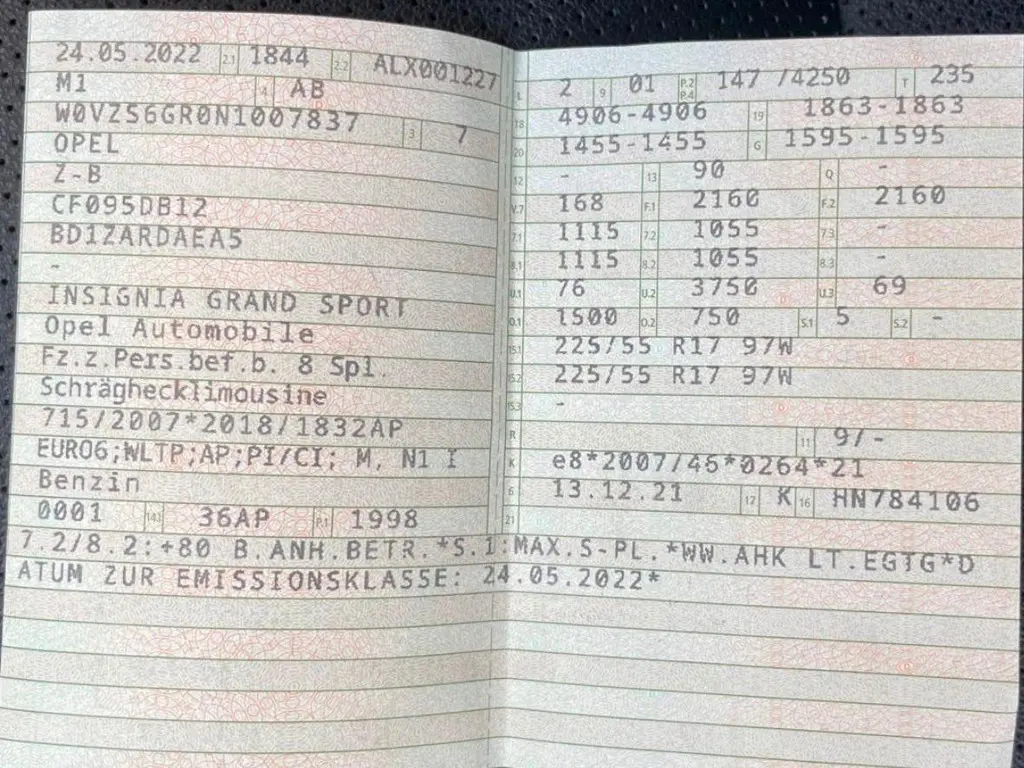 24.05.2022 2.1 1844 2.2 ALX001227
M1 4 AB
W0VZS6GR0N1007837 3 7
OPEL
Z-B
CF095DB12
BD1ZARDAEA5
-
INSIGNIA GRAND SPORT
Opel Automobile
Fz.z.Pers.bef.b. 8 Spl.
Schräghecklimousine
715/2007*2018/1832AP
EURO6;WLTP;AP;PI/CI; M, N1 I
Benzin
0001 14.1 36AP P.1 1998
L 2 9 01 P.2 P.4 147 /4250 T 235
18 4906-4906 19 1863-1863
20 1455-1455 G 1595-1595
12 - 13 90 Q -
V.7 168 F.1 2160 F.2 2160
7.1 1115 7.2 1055 7.3 -
8.1 1115 8.2 1055 8.3 -
U.1 76 U.2 3750 U.3 69
O.1 1500 O.2 750 S.1 5 S.2 -
15.1 225/55 R17 97W
15.2 225/55 R17 97W
15.3 -
R 11 9/-
K e8*2007/46*0264*21
6 13.12.21 17 K 16 HN784106
21
7.2/8.2:+80 B.ANH.BETR.*S.1:MAX.S-PL.*WW.AHK LT.EGTG*D
ATUM ZUR EMISSIONSKLASSE: 24.05.2022*